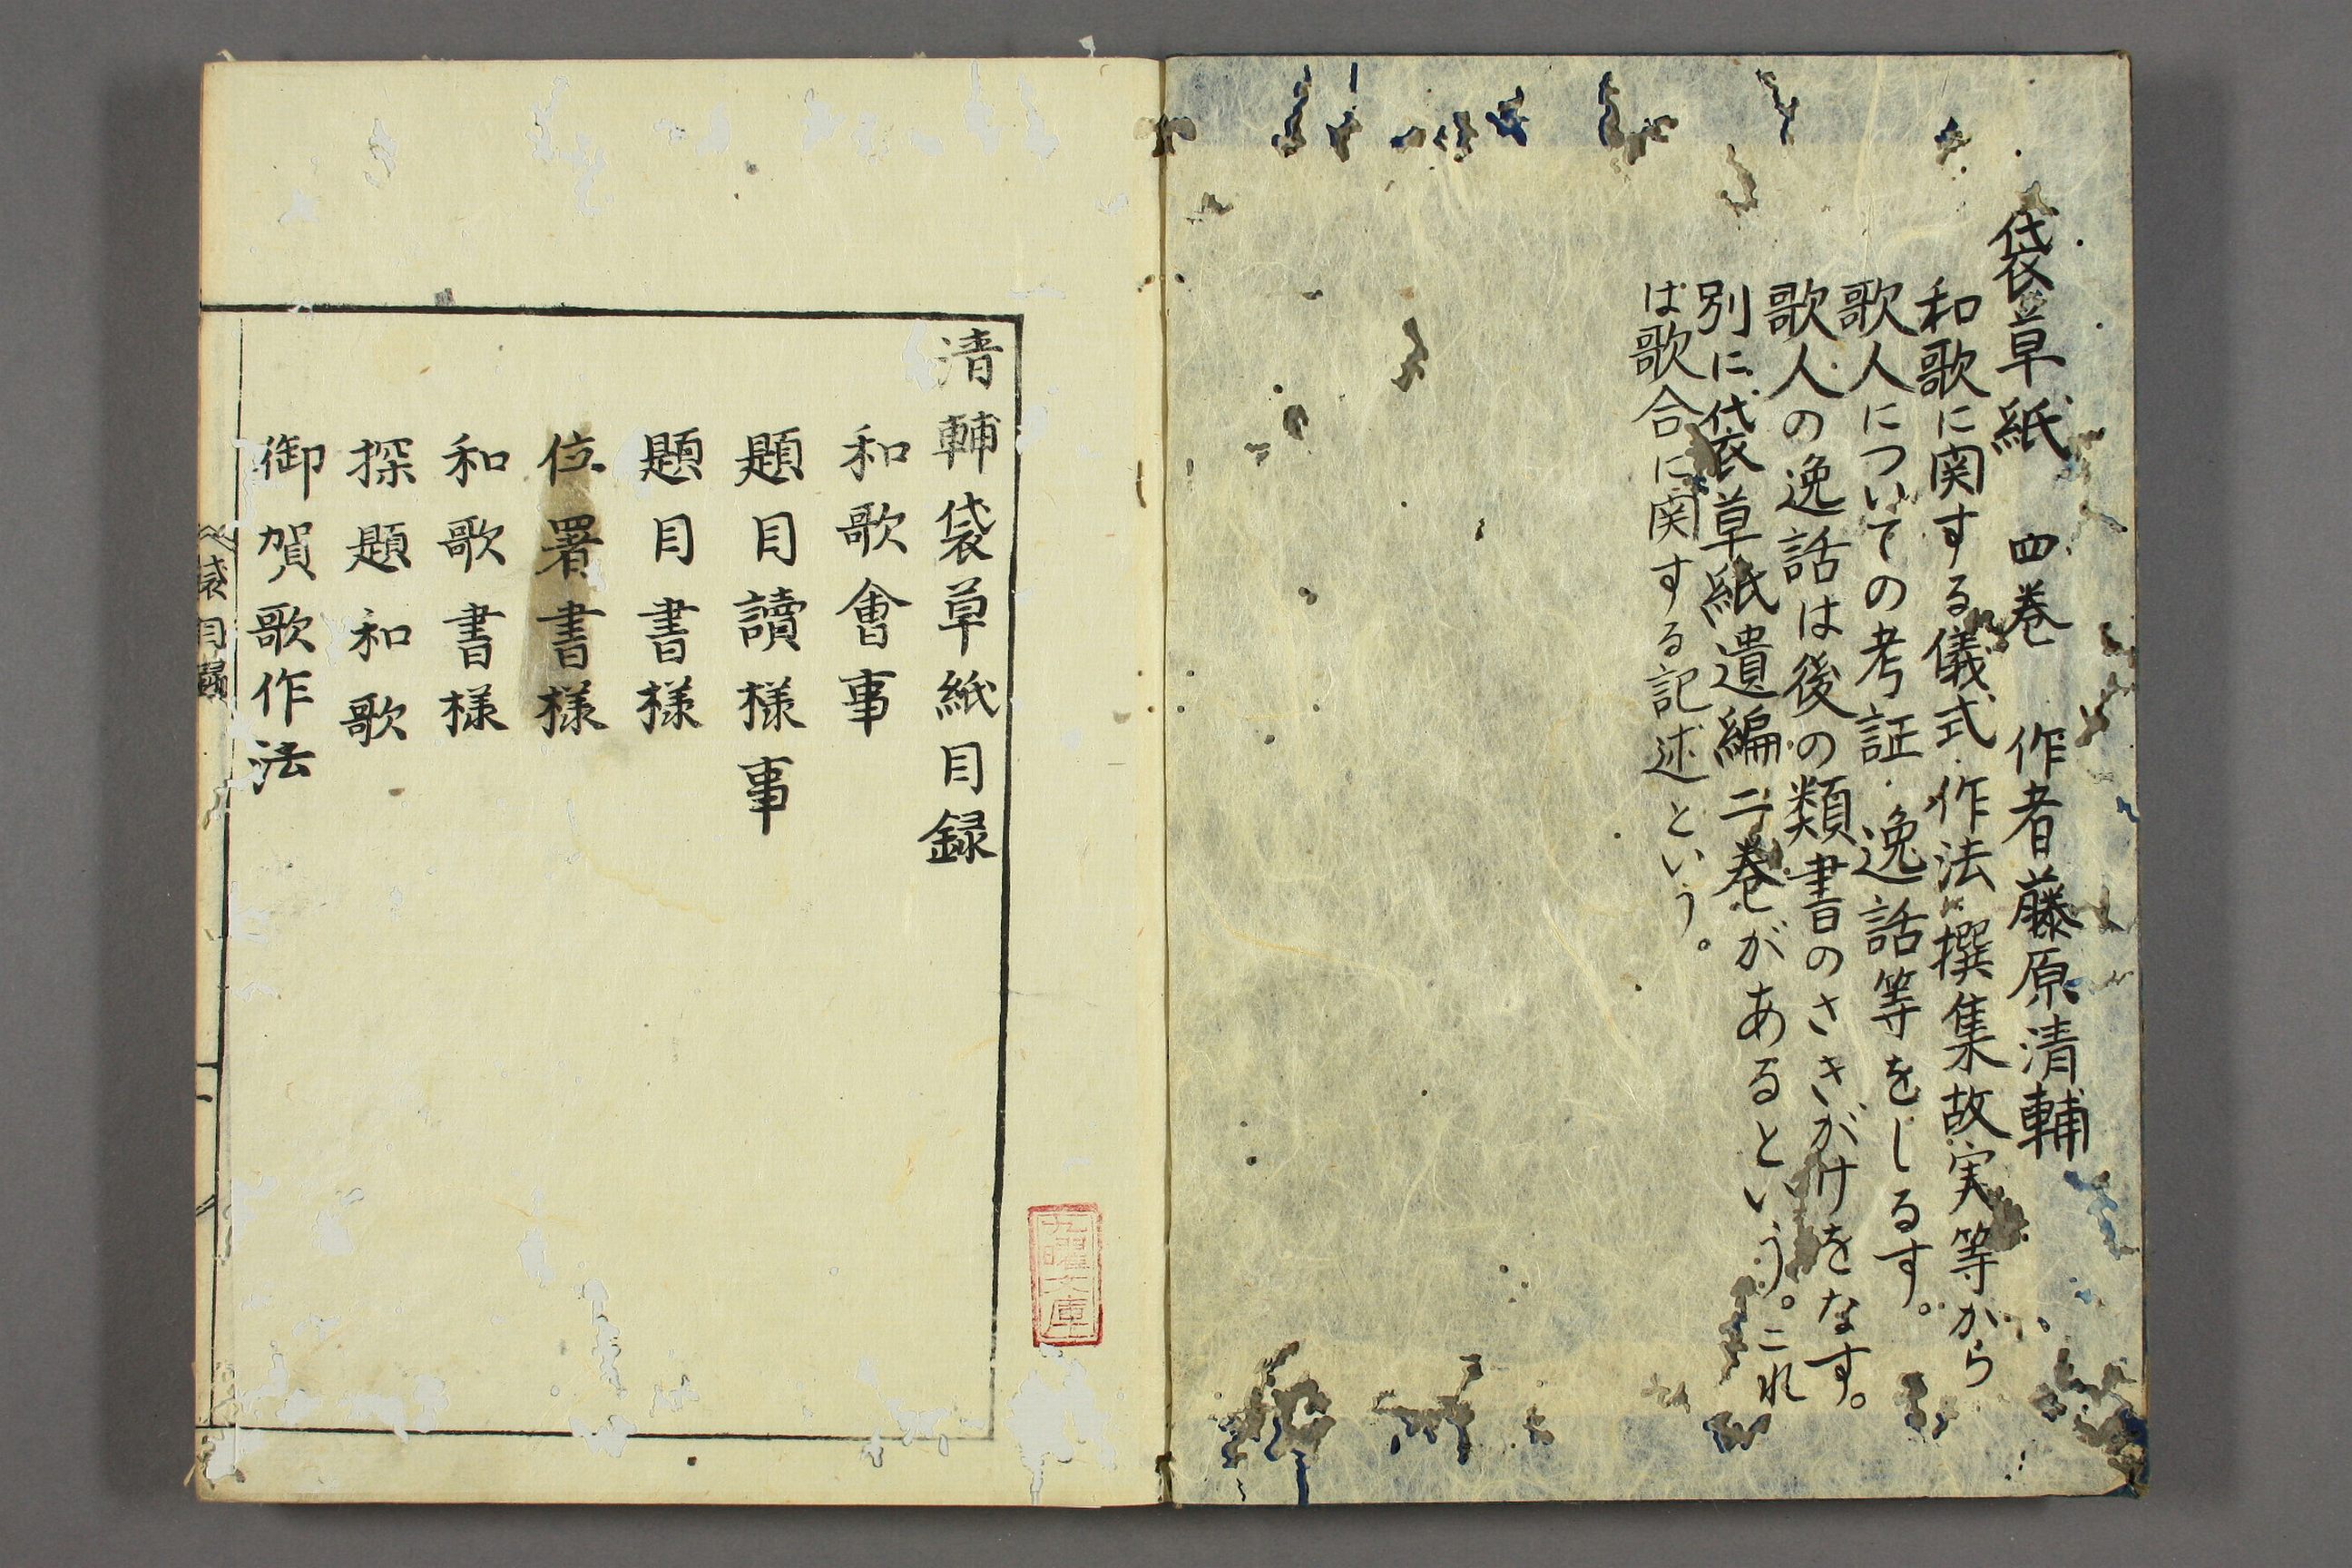 袋草紙　四巻　作者藤原清輔
和歌に関する儀式・作法・撰集故実等から
歌人についての考証・逸話等をしるす。
歌人の逸話は後の類書のさきがけをなす。
別に袋草紙遺編二巻があるという。これ
は歌合に関する記述という。
九曜文庫
清輔袋草紙目録
和歌會事
題目讀様事
題目書様
位署書様
和歌書様
探題和歌
御賀歌作法
袋目録